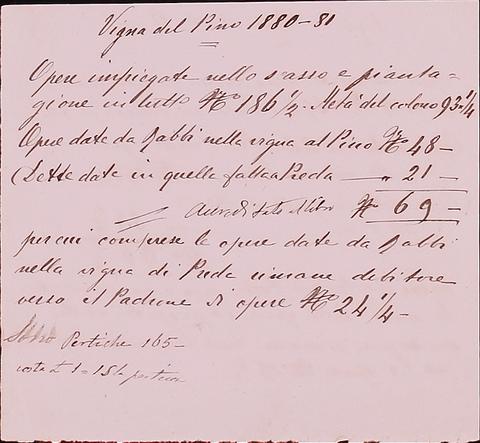 Vigna del Pino 1880-81
Opere impiegate nello scasso e pianta=
gione in tutto N.º 186 1/2. Metà del colono 93 1/4
Opere date da Babbi nella vigna al Pino N.º 48 -
Dette date in quella fatta a Preda — " 21 -
Accreditato al libro N.º 69 -
percui comprese le opere date da Babbi
nella vigna di Preda rimane debitore
verso il Padrone di opere N.º 24 1/4 -
Pertiche 165 -
costa £ 1 = 15 la pertica